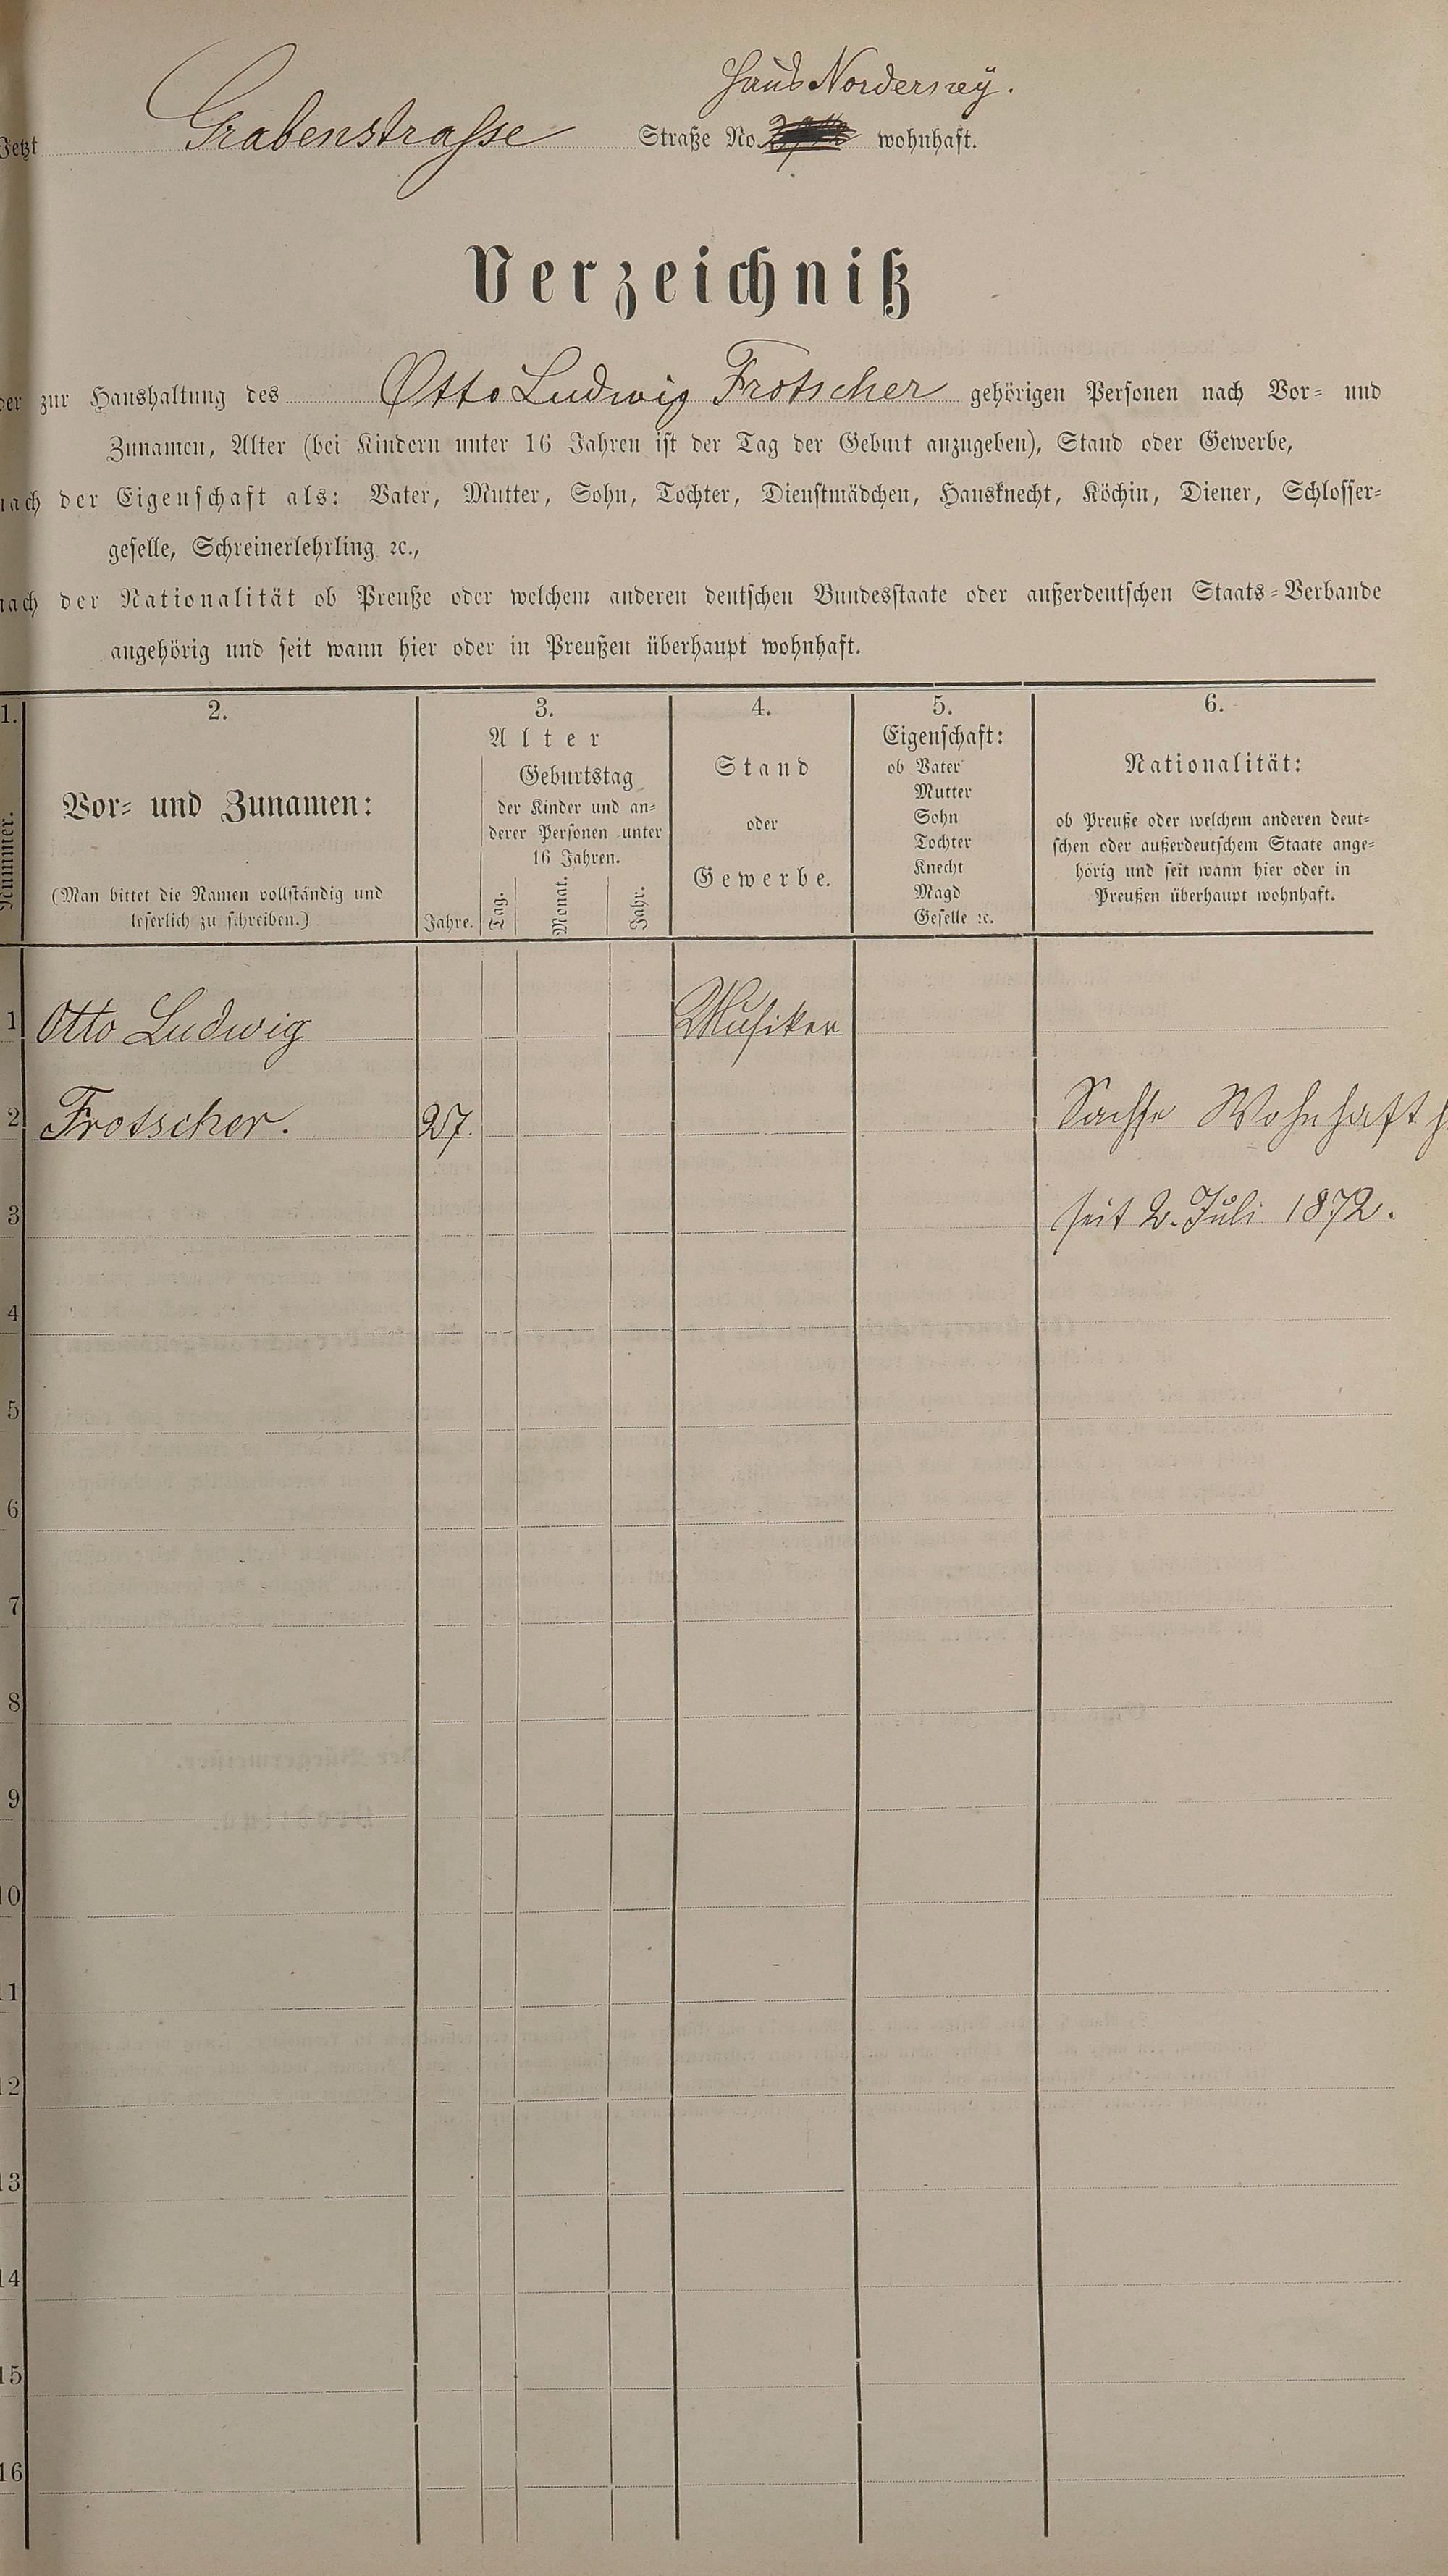 Haus Norderney.
Jetzt Grabenstrasse Straße No. wohnhaft.
Verzeichniß
der zur Haushaltung des Otto Ludwig Frotscher gehörigen Personen nach Vor- und
Zunamen, Alter (bei Kindern unter 16 Jahren ist der Tag der Geburt anzugeben), Stand oder Gewerbe,
nach der Eigenschaft als: Vater, Mutter, Sohn, Tochter, Dienstmädchen, Hausknecht, Köchin, Diener, Schlosser-
geselle, Schreinerlehrling ꝛc.,
nach der Nationalität ob Preuße oder welchem anderen deutschen Bundesstaate oder außerdeutschen Staats-Verbande
angehörig und seit wann hier oder in Preußen überhaupt wohnhaft.
1.
Nummer.
2.
Vor- und Zunamen:
(Man bittet die Namen vollständig und
leserlich zu schreiben.)
3.
Alter
Geburtstag
der Kinder und an-
derer Personen unter
16 Jahren.
Jahre. Tag. Monat. Jahr.
4.
Stand
oder
Gewerbe.
5.
Eigenschaft:
ob Vater
Mutter
Sohn
Tochter
Knecht
Magd
Geselle ꝛc.
6.
Nationalität:
ob Preuße oder welchem anderen deut-
schen oder außerdeutschem Staate ange-
hörig und seit wann hier oder in
Preußen überhaupt wohnhaft.
1 Otto Ludwig Musiker
2 Frotscher. 27. Sachse Wohnhaft
3 seit 2. Juli 1872.
4
5
6
7
8
9
10
11
12
13
14
15
16